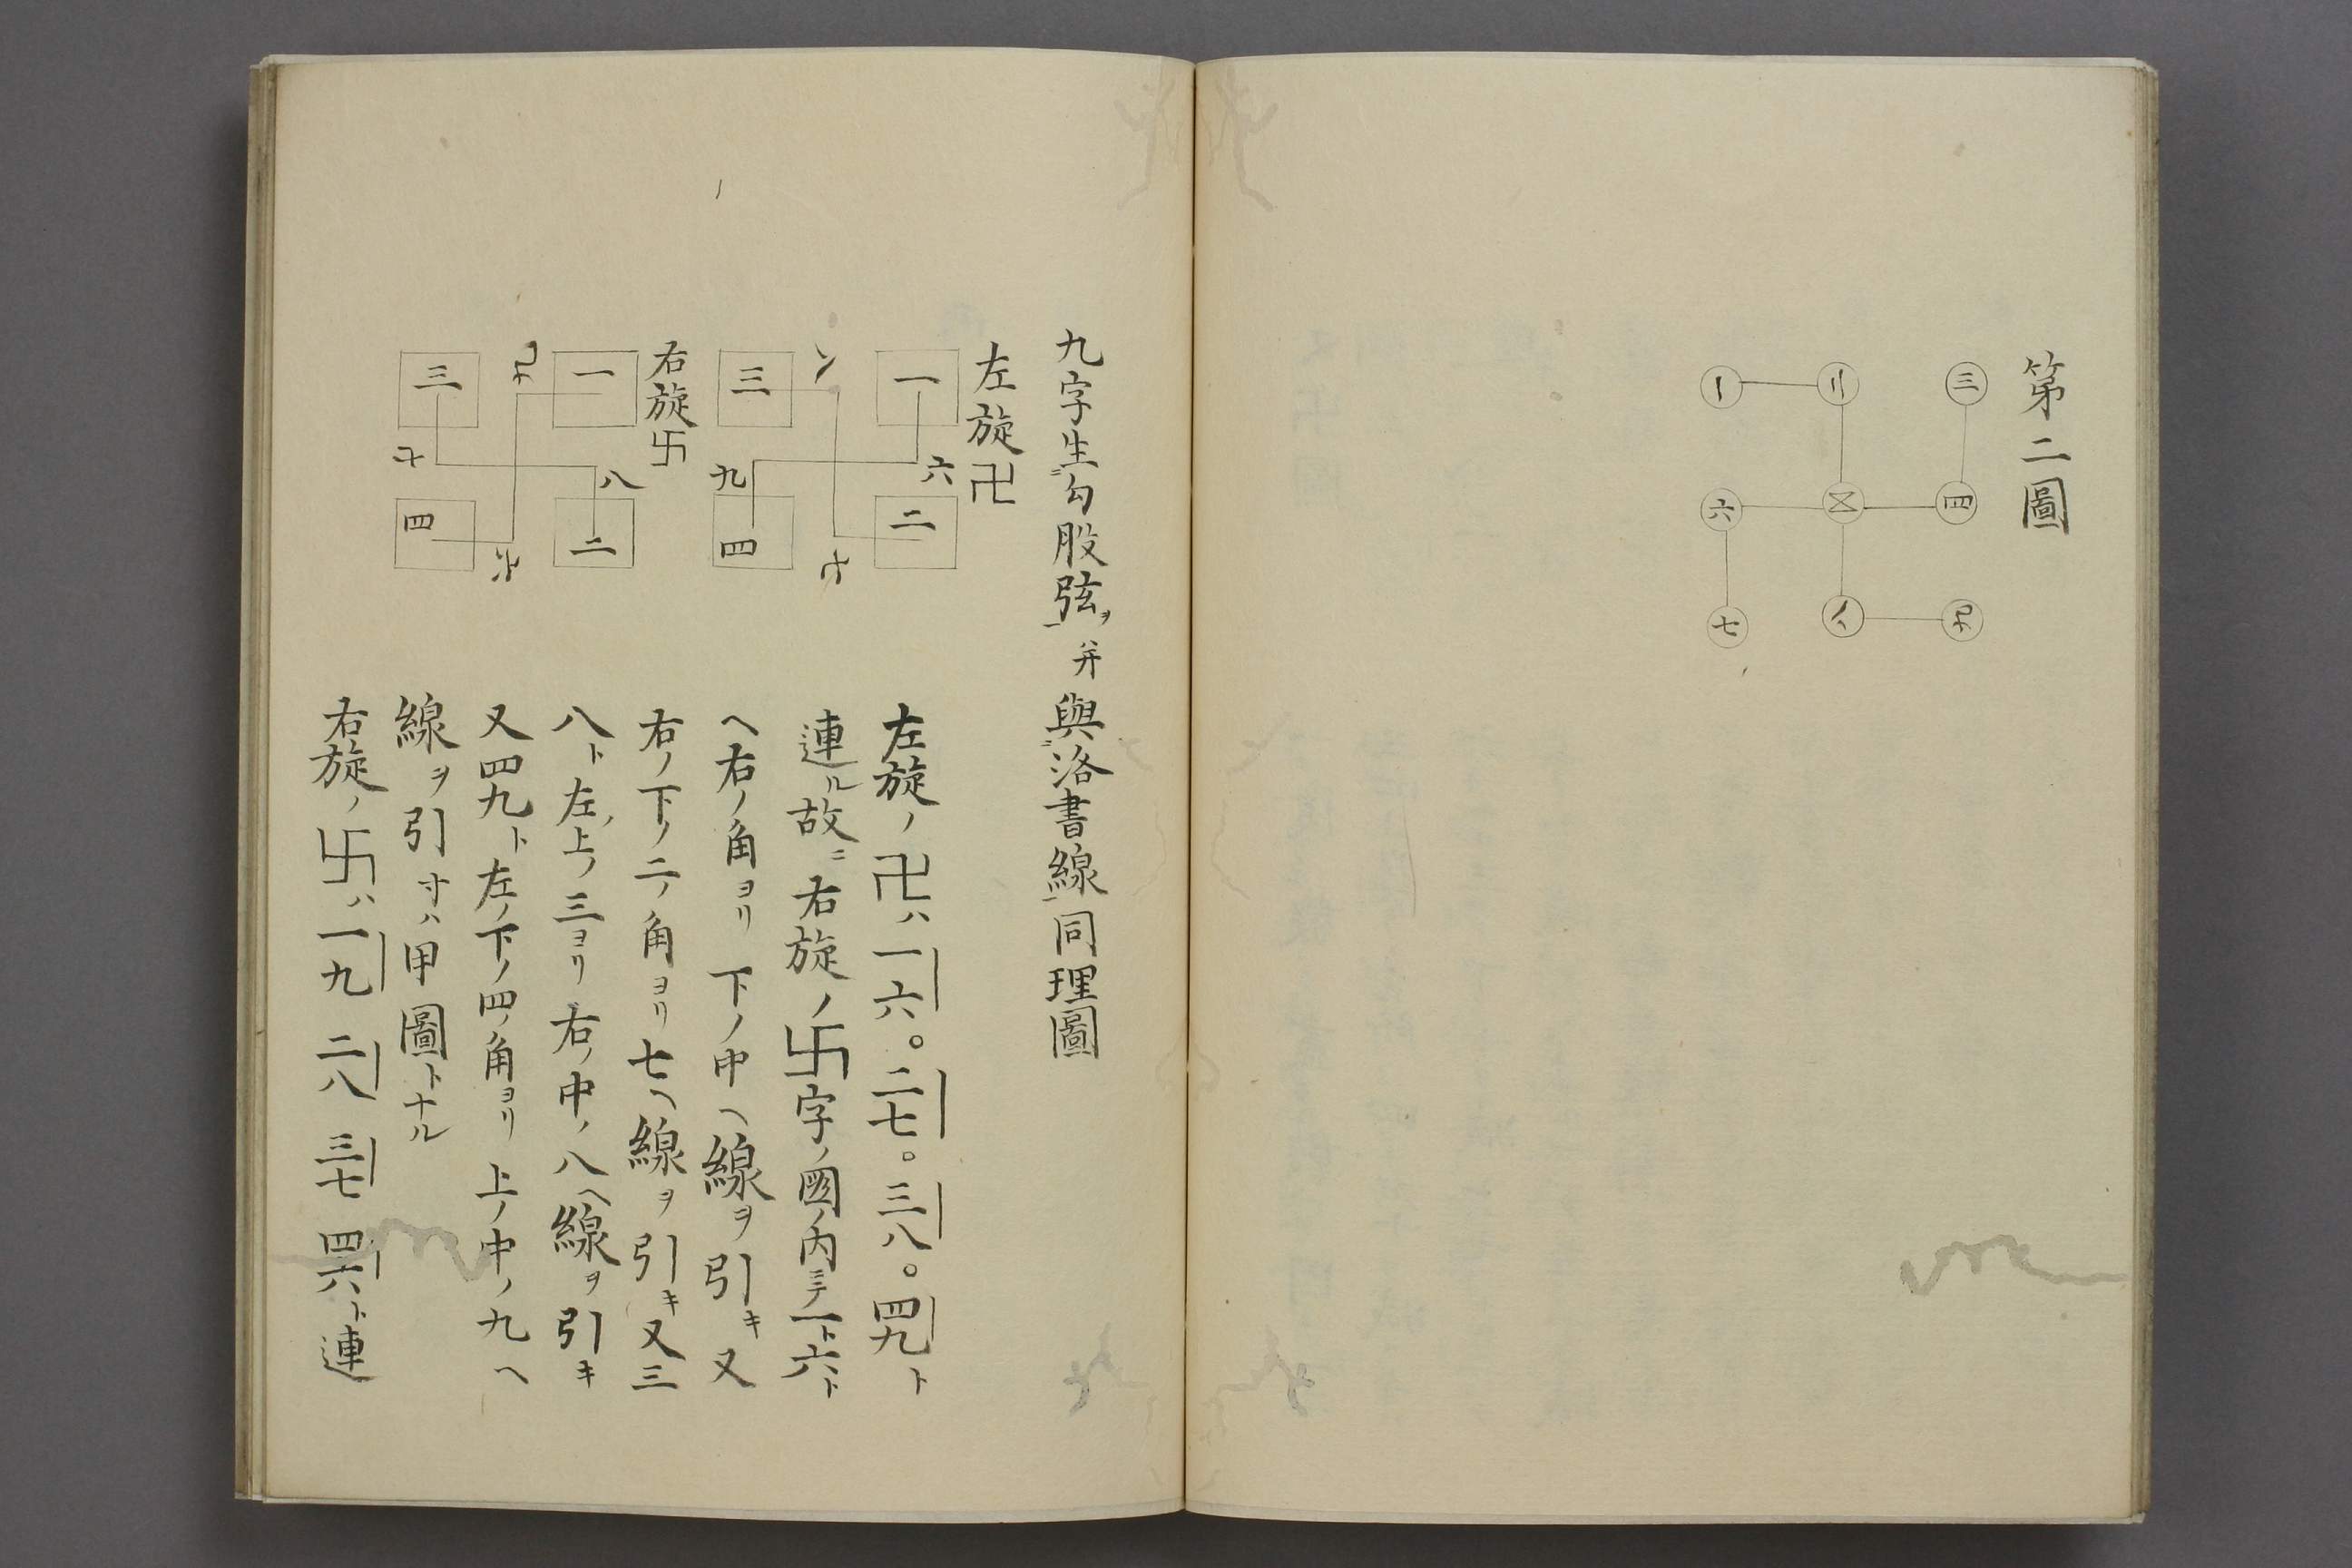 第二圖
三
四
五
六
七
九字生勾股弦ヲ并與洛書線同理圖
左旋卍
一
六
二
三
九
四
右旋卐
一
八
二
三
七
四
左旋ノ卍ハ一六。二七。三八。四九ト
連ル故ニ右旋ノ卐字ノ圖ノ内ニテ一ト六ト
ヘ右ノ角ヨリ下ノ中ヘ線ヲ引キ又
右ノ下ノ二ノ角ヨリ七ヘ線ヲ引キ又三
八ト左ノ上ノ三ヨリ右ノ中ノ八ヘ線ヲ引キ
又四九ト左ノ下ノ四ノ角ヨリ上ノ中ノ九ヘ
線ヲ引寸ハ甲圖トナル
右旋ノ卐ハ一九二八三七四六ト連